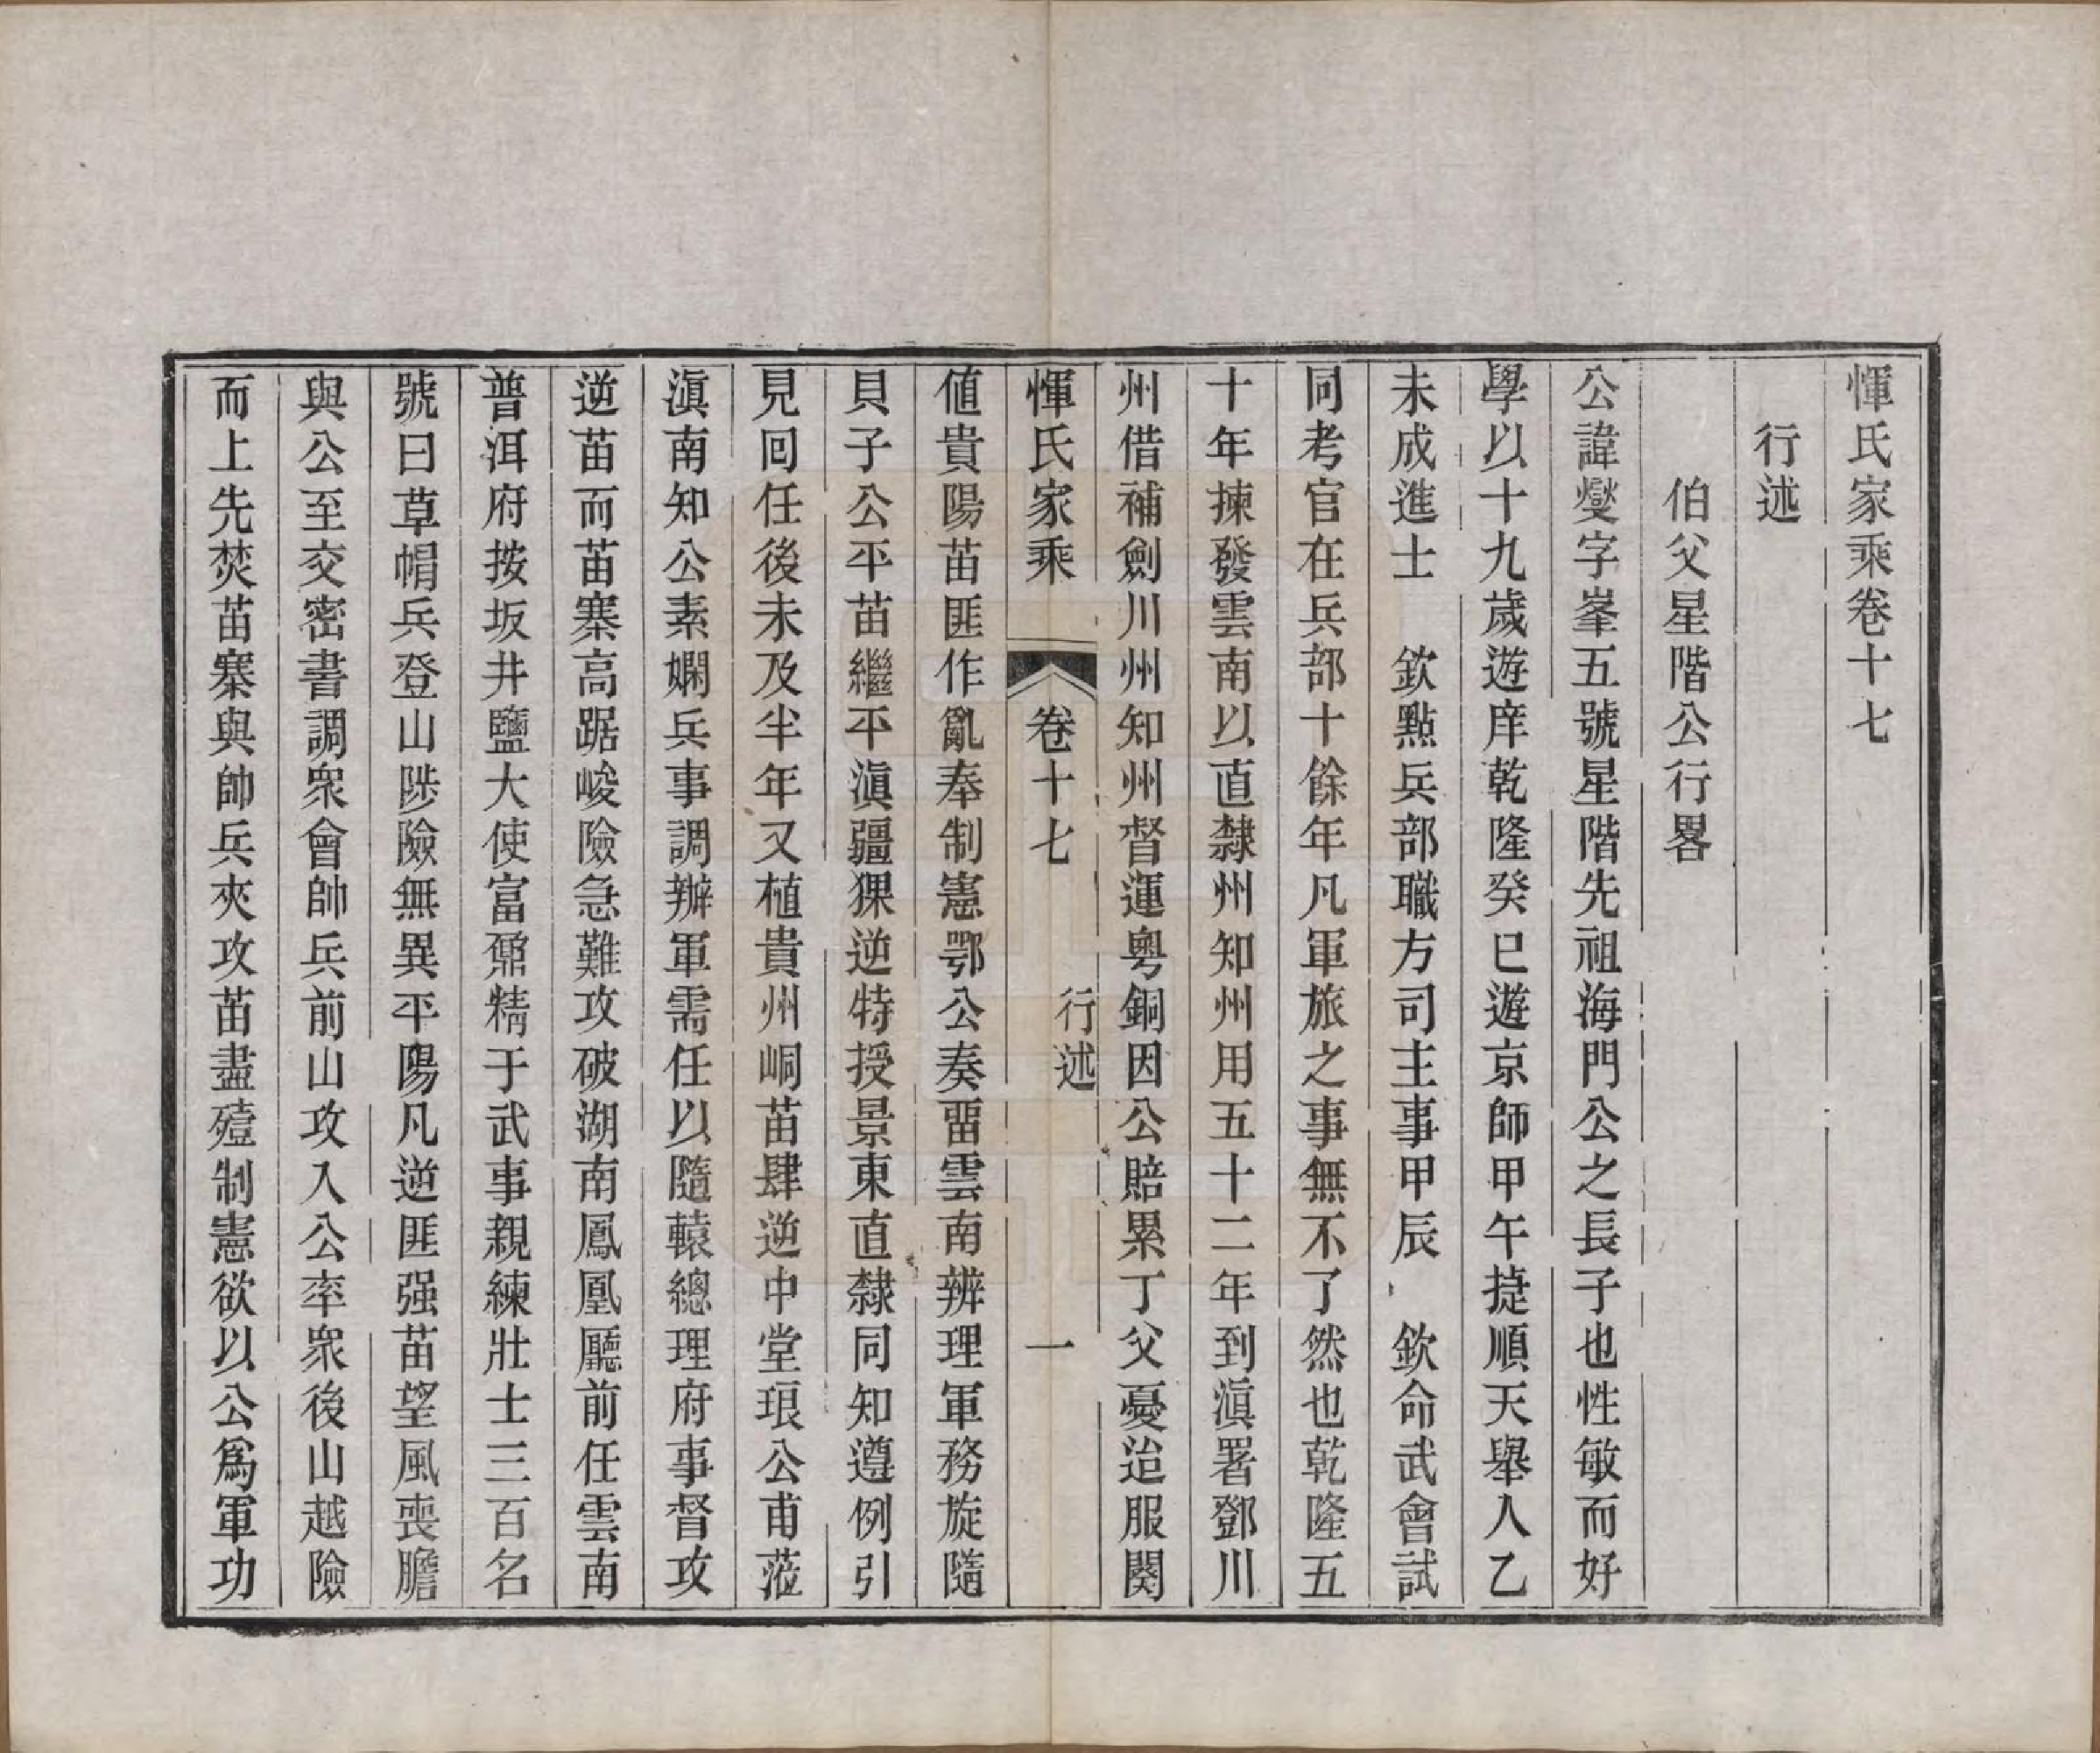 惲氏家乘卷十七
行述
伯父星階公行畧
公諱燮字峯五號星階先祖海門公之長子也性敏而好
學以十九歲遊庠乾隆癸巳遊京師甲午㨗順天舉人乙
未成進士　欽點兵部職方司主事甲辰　欽命武會試
同考官在兵部十餘年凡軍旅之事無不了然也乾隆五
十年揀發雲南以直隸州知州用五十二年到滇署鄧川
州借補劍川州知州督運粵銅因公賠累丁父憂迨服闋
惲氏家乘　卷十七　行述　一
值貴陽苗匪作亂奉制憲鄂公奏畱雲南辨理軍務旋隨
貝子公平苗繼平滇疆猓逆特授景東直隸同知遵例引
見回任後未及半年又植貴州峒苗肆逆中堂琅公甫蒞
滇南知公素嫻兵事調辦軍需任以隨轅總理府事督攻
逆苗而苗寨高踞峻險急難攻破湖南鳳凰廳前任雲南
普洱府按坂井鹽大使富鼐精于武事親練壯士三百名
號曰草帽兵登山陟險無異平陽凡逆匪强苗望風喪膽
與公至交密書調眾會帥兵前山攻入公率眾後山越險
而上先焚苗寨與帥兵夾攻苗盡殪制憲欲以公爲軍功